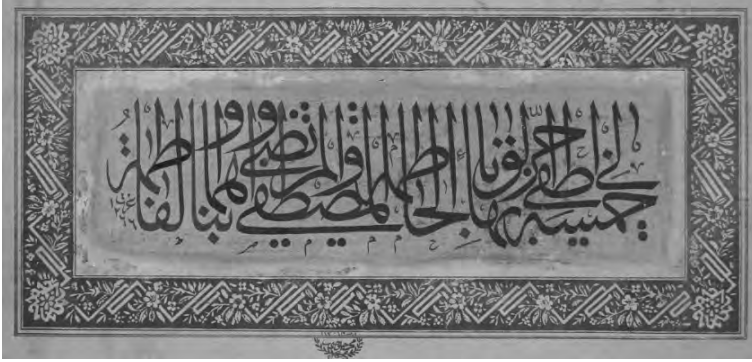 لي خمسة أطفي بها حر الوباء الحاطمة المصطفى والمرتضى وابناهما والفاطمة
١٢٦٦